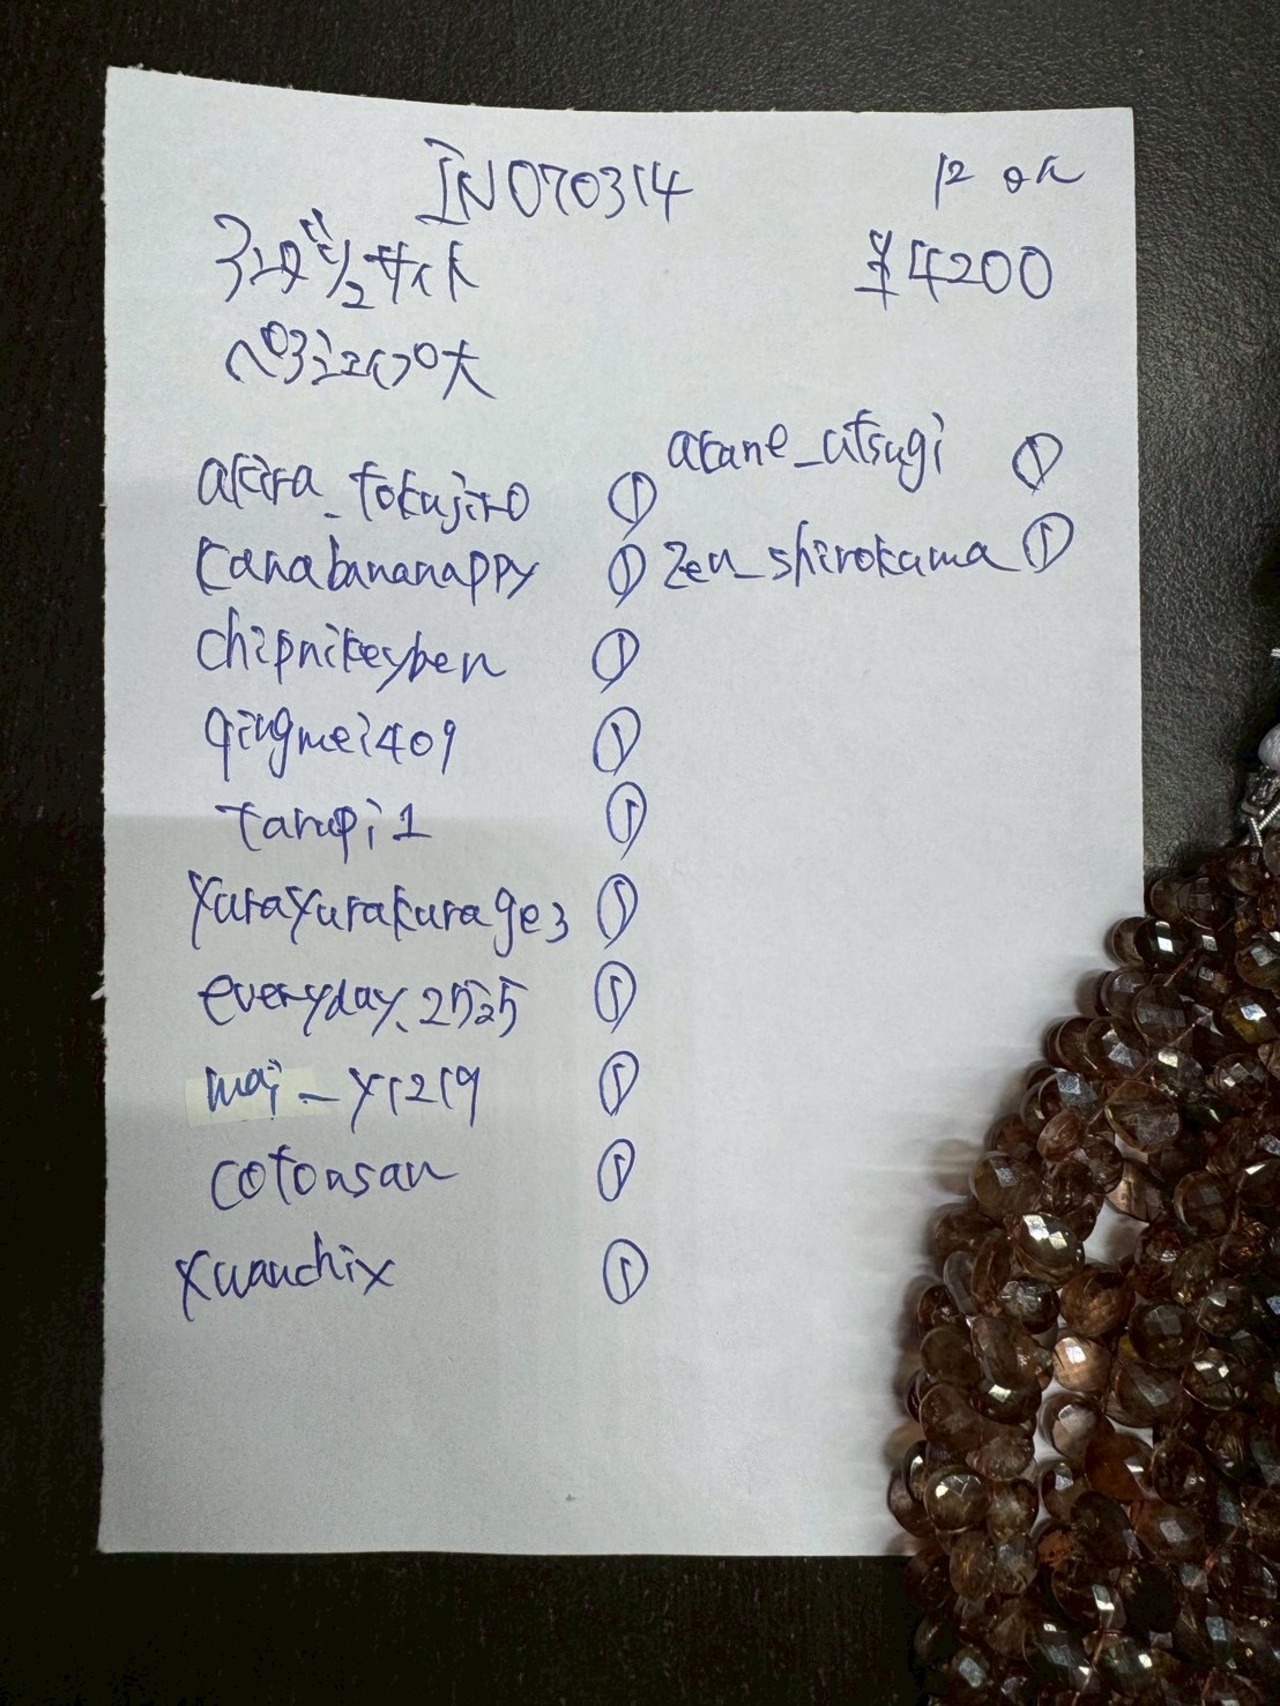 IN070314
12 ok
アンダリュサイト
¥4200
akira_tokujiro ①
kanabananappy ①
chipnikeyben ①
qingmei409 ①
tarupi1 ①
yurayurakurage3 ①
everyday.2525 ①
mai_y1219 ①
cotonsan ①
xuanchix ①
akane_utsugi ①
zen_shirokama ①